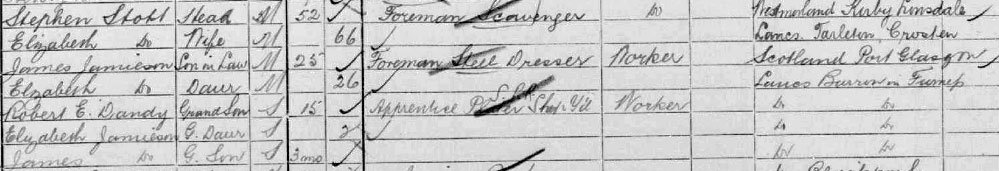 Stephen Stott Head M 52 Foreman Scavenger Do Westmorland Kirby Lonsdale
Elizabeth Do Wife M 66 Lancs. Tarleton Croston
James Jamieson Son in Law M 25 Foreman Steel Dresser Worker Scotland Port Glasgow
Elizabeth Do Daur M 26 Lancs Barrow in Furness
Robert E. Dandy Grandson S 15 Apprentice Ship Worker Do Do
Elizabeth Jamieson G. Daur S 2 Do Do
James Do G. Son S 3 mo Do Do